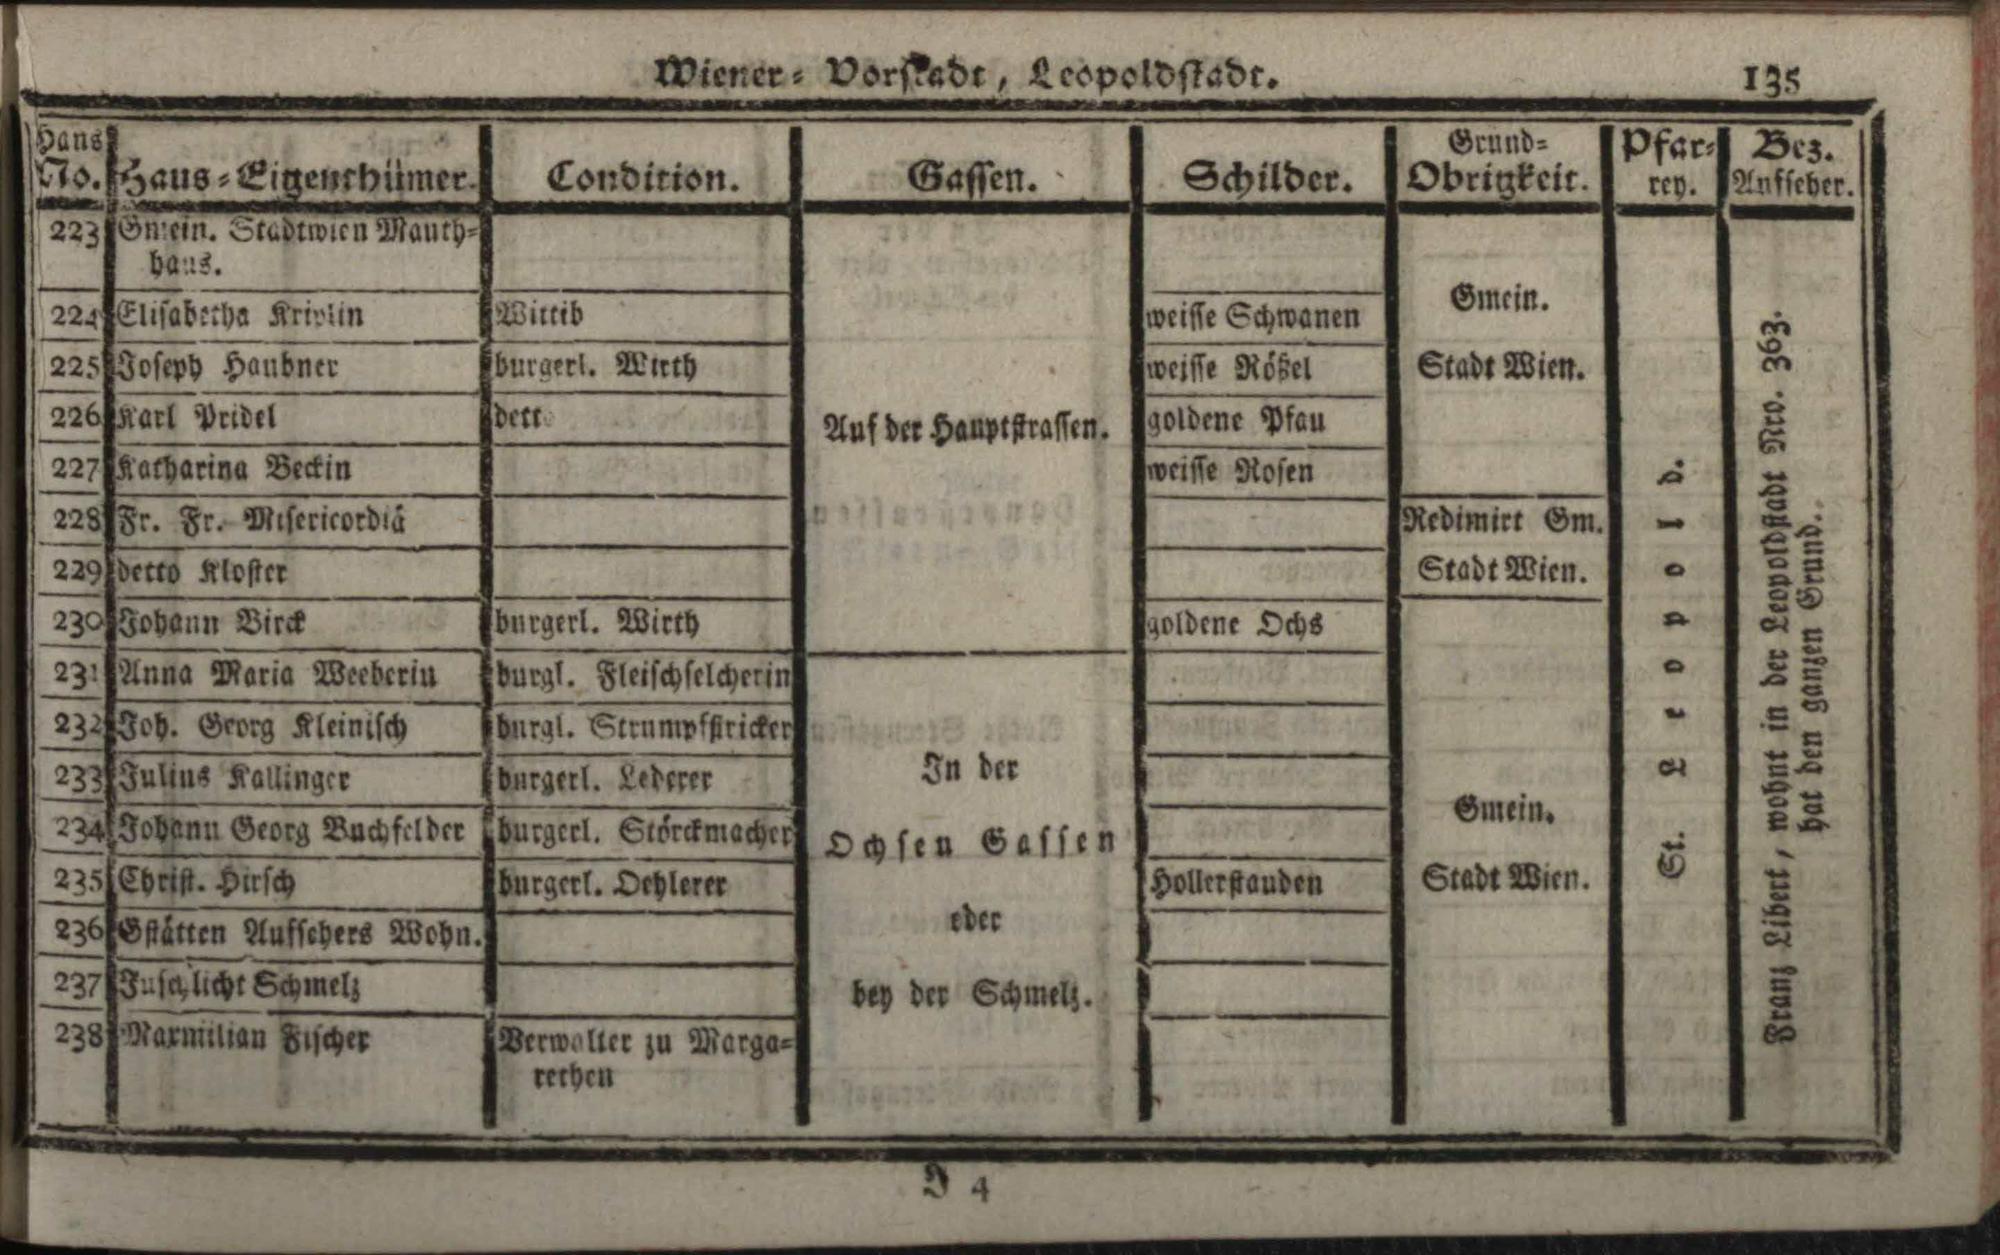 Wiener- Vorstadt, Leopoldstadt. 135
Haus No. Haus-Eigenthümer. Condition. Gassen. Schilder. Grund-Obrigkeit. Pfar-rey. Bez. Aufseher.
223 Gmein. Stadtwien Mauth-
haus.
224 Elisabetha Wittib weisse Schwanen
225 Joseph Haubner burgerl. Wirth weisse Rößel
226 Karl Pridel detto goldene Pfau
227 Katharina Beckin weisse Rosen
228 Fr. Fr. Misericordiä
229 detto Kloster
230 Johann Birck burgerl. Wirth goldene Ochs
231 Anna Maria Weeberin burgl. Fleischselcherin
232 Joh. Georg Kleinisch burgl. Strumpfstricker
233 Julius Kallinger burgerl. Lederer
234 Johann Georg Buchfelder burgerl. Störckmacher
235 Christ. Hirsch burgerl. Oehlerer Hollerstauden
236 Gstätten Aufsehers Wohn.
237 Inschlicht Schmelz
238 Maxmilian Fischer Verwalter zu Marga-
rethen
Auf der Hauptstrassen.
In der
Ochsen Gassen
oder
bey der Schmelz.
Gmein.
Stadt Wien.
Redimirt Gm.
Stadt Wien.
Gmein.
Stadt Wien.
St. Leopold.
Franz Libert, wohnt in der Leopoldstadt Nro. 363.
hat den ganzen Grund.
J 4